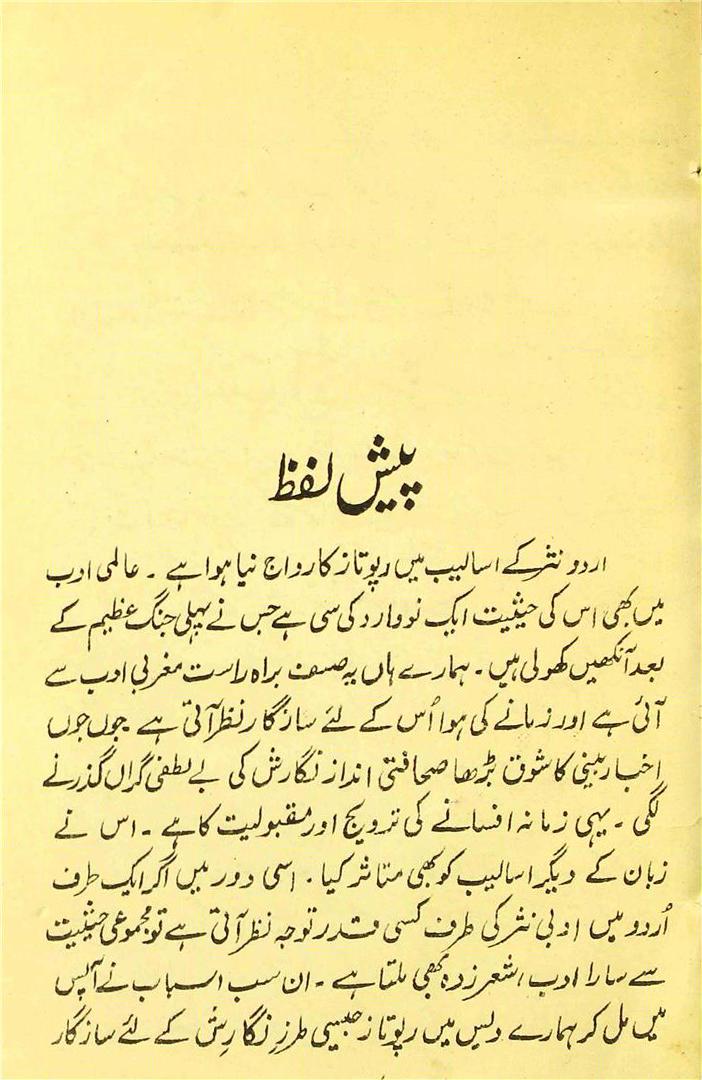 پیش لفظ
اردو نثر کے اسالیب میں رپوتاز کا رواج نیا ہوا ہے ۔ عالمی ادب
میں بھی اس کی حیثیت ایک نووارد کی سی ہے جس نے پہلی جنگ عظیم کے
بعد آنکھیں کھولی ہیں ۔ ہمارے ہاں یہ صنف براہ راست مغربی ادب سے
آئی ہے اور زمانے کی ہوا اُس کے لئے سازگار نظر آتی ہے جوں جوں
اخبار بینی کا شوق بڑھا صحافتی انداز نگارش کی بے لطفی گراں گذرنے
لگی ۔ یہی زمانہ افسانے کی ترویج اور مقبولیت کا ہے ۔ اس نے
زبان کے دیگر اسالیب کو بھی متاثر کیا ۔ اسی دور میں اگر ایک طرف
اُردو میں ادبی نثر کی طرف کسی قدر توجہ نظر آتی ہے تو مجموعی حیثیت
سے سارا ادب شعر زدہ بھی ملتا ہے ۔ ان سب اسباب نے آپس
میں مل کر ہمارے دیس میں رپوتاز جیسی طرزِ نگارِش کے لئے سازگار